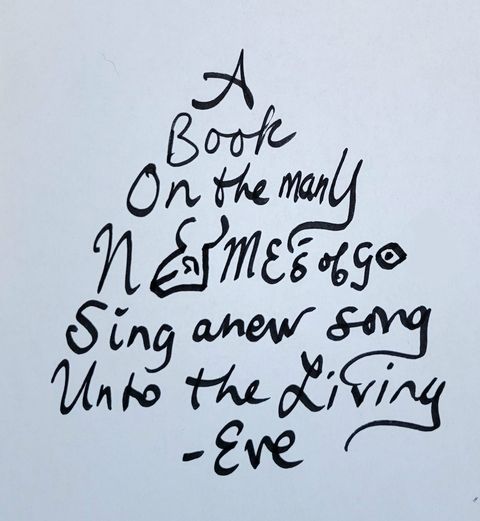 A
Book
On the manY
N MES of go
Sing anew song
Unto the Living
-Eve